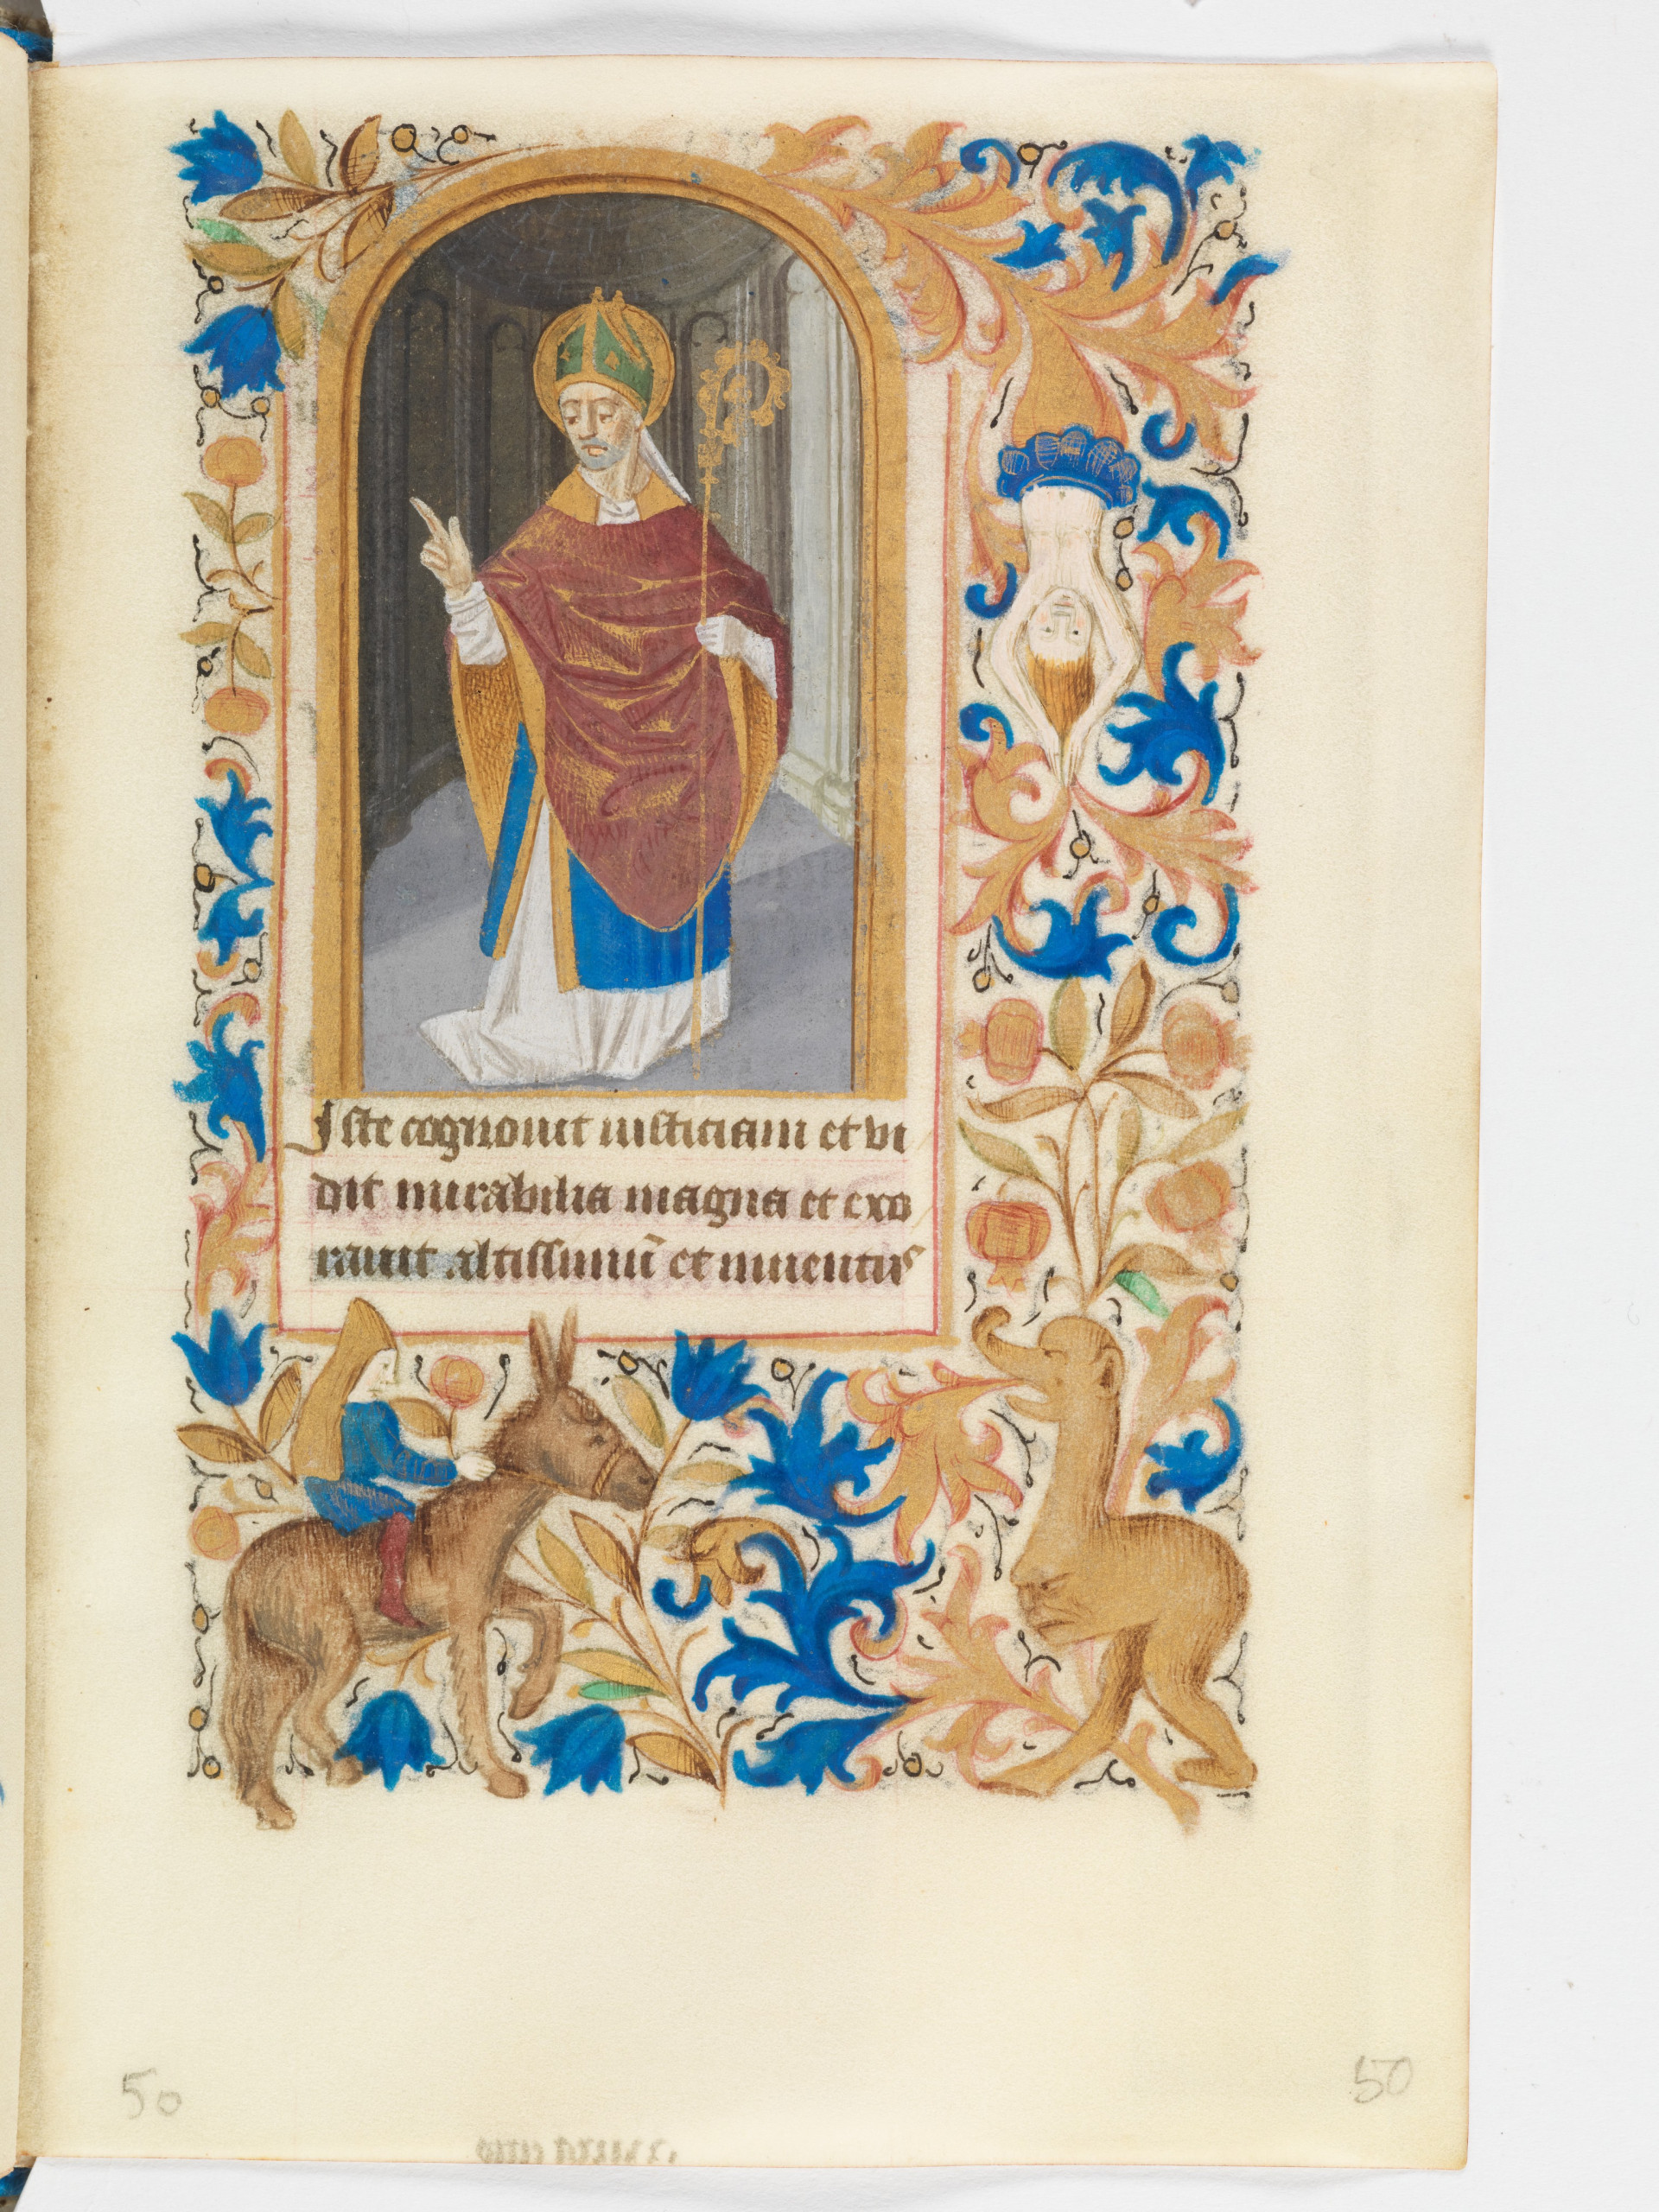 Iste cognouit iusticiam et vi
dit mirabilia magna et exo
rauit altissimū et inuentus
50 50